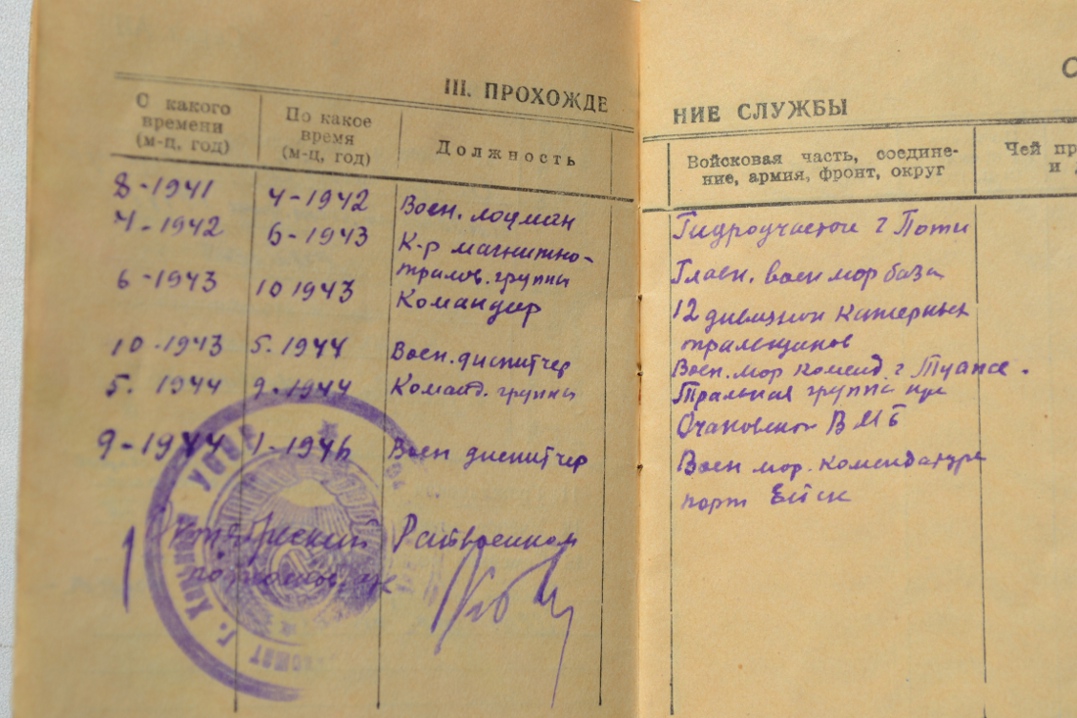 III. ПРОХОЖДЕ
НИЕ СЛУЖБЫ
С какого
времени
(м-ц, год)
По какое
время
(м-ц, год)
Должность
Войсковая часть, соедине-
ние, армия, фронт, округ
Чей пр
и
8-1941
4-1942
Воен. лоцман
Гидроучасток г Поти
4-1942
6-1943
К-р магнитно-
трал. группы
Главн. воен мор база
6-1943
10 1943
Командир
12 дивизион катерных
тральщиков
10-1943
5.1944
Воен. диспитчер
Воен. мор коменд. г Туапсе.
5. 1944
9-1944
Команд. группы
Тральная группа при
Очаковской ВМБ
9-1944
1-1946
Воен диспитчер
Воен мор. комендатуре
порт Ейск
Октябрьский Райвоенком